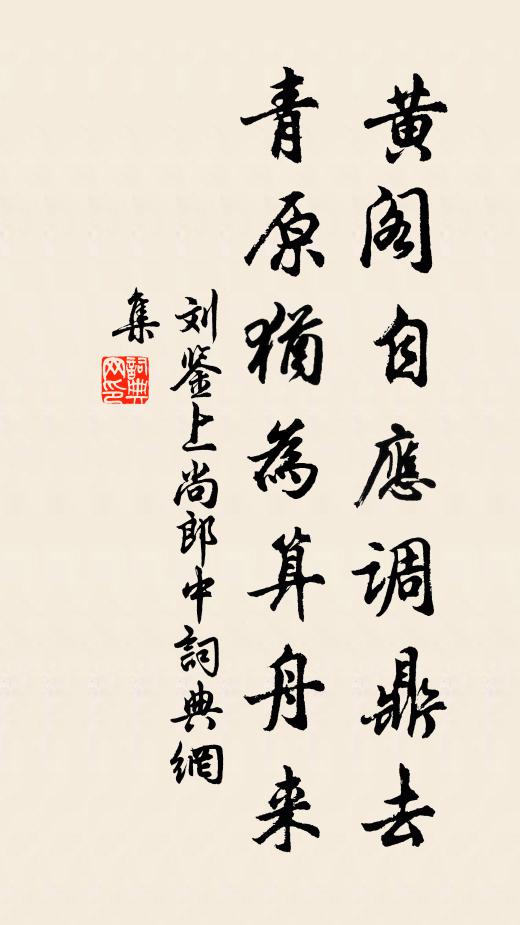 黄阁自應調鼎去
青原猶為算舟来
刘鉴上尚郎中詞典網
集
詞典
网印